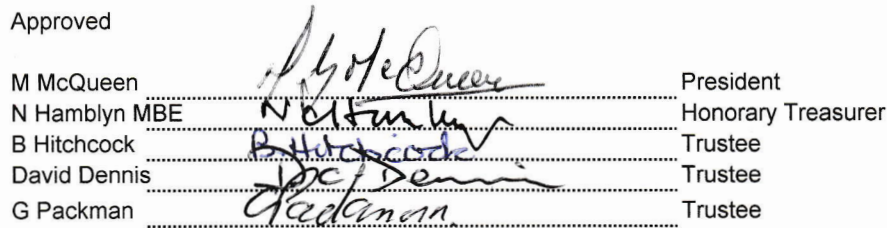 Approved
M McQueen McQueen President
N Hamblyn MBE Honorary Treasurer
B Hitchcock B. Hitchcock Trustee
David Dennis D.C. Dennis Trustee
G Packman GPackman. Trustee